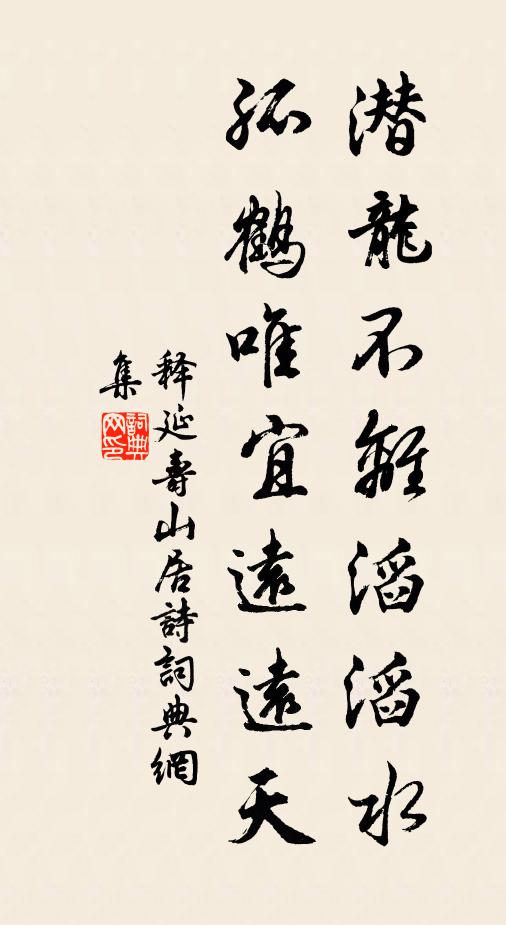 潜龍不離滔滔水
孤鶴唯宜遠遠天
释延壽山居詩詞典網
集
詞典
网印